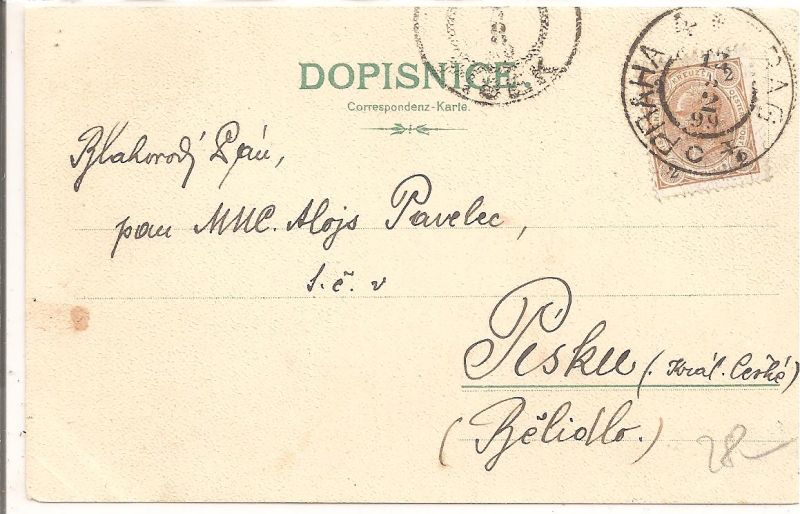 DOPISNICE.
Correspondenz-Karte.
PRAHA PRAG
12
2
99
Blahorodý Pán,
pan MUC. Alojs Pavelec,
t. č. v
Písku (. Král. České)
(Bělidlo.)
28